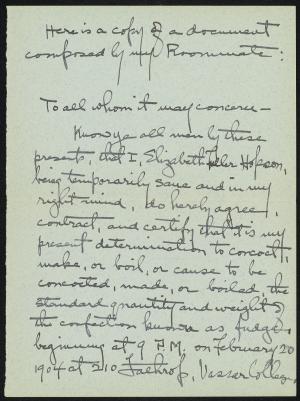 Here is a copy of a document
composed by my Roommate:
To all whom it may concern—
Know ye all men by these
presents, that I, Elizabeth Fuller Hopson,
being temporarily sane and in my
right mind, do hereby agree,
contract, and certify that it is my
present determination to concoct,
make, or boil, or cause to be
concocted, made, or boiled the
standard quantity and weight of
the confection known as fudge,
beginning at 9 P.M. on February 20
1904 at 210 Lathrop, Vassar College,